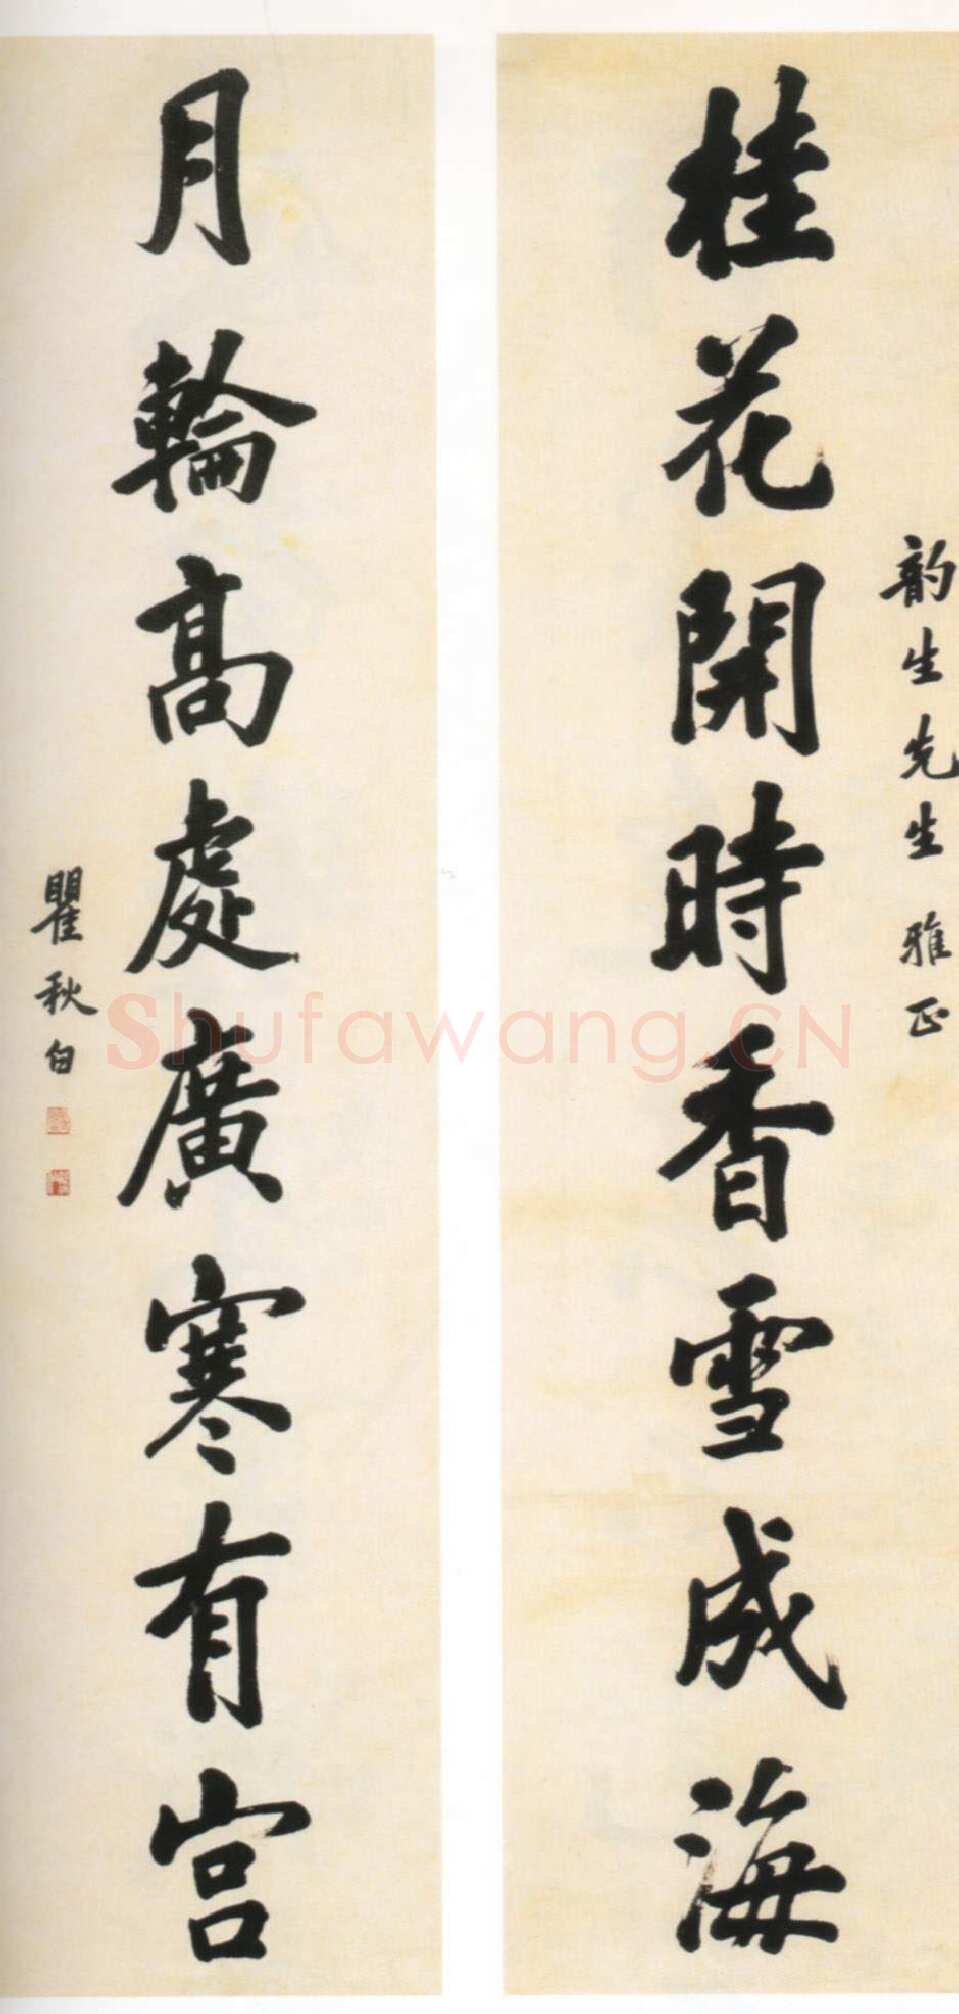 韵生先生雅正
桂花開時香雪成海
月輪高處廣寒有宮
瞿秋白
Shufawang.CN